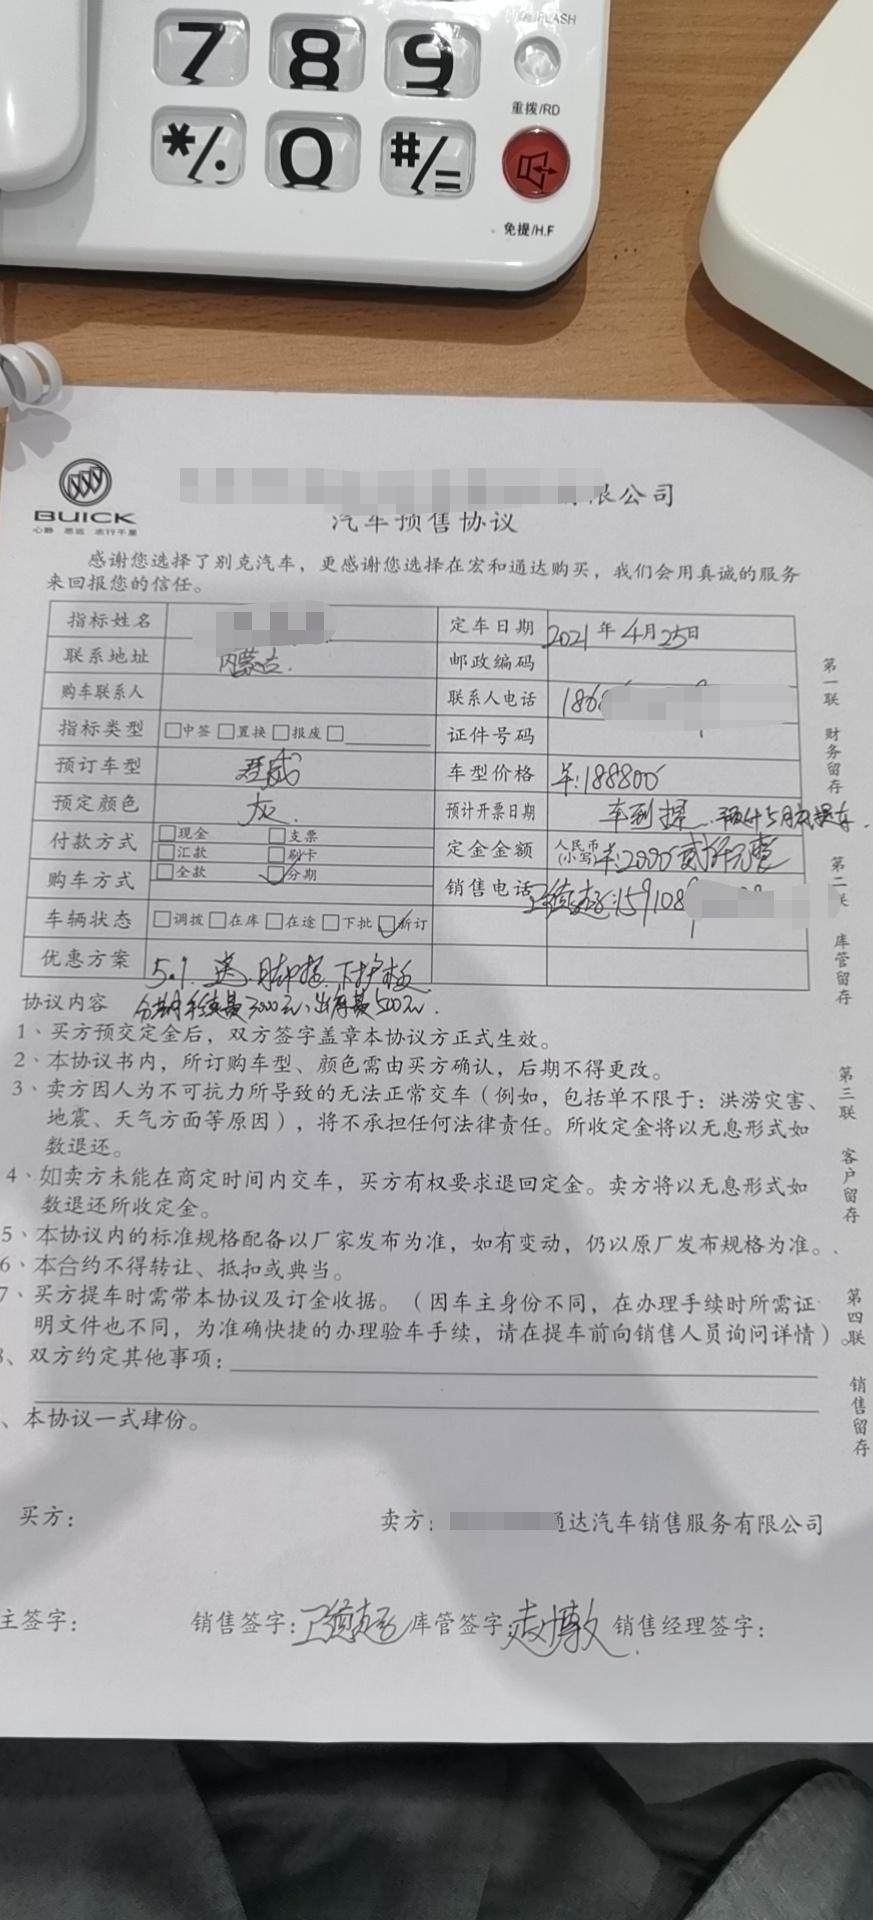 7 8 9
重拨/RD
*/. 0 #/=
免提/H.F
BUICK
心静 思远 志行千里
限公司
汽车预售协议
感谢您选择了别克汽车，更感谢您选择在宏和通达购买，我们会用真诚的服务
来回报您的信任。
指标姓名 定车日期 2021年4月25日
联系地址 内蒙古. 邮政编码
购车联系人 联系人电话 1868
指标类型 □中签 □置换 □报废 □ 证件号码
预订车型 君威 车型价格 羊:188800
预定颜色 灰. 预计开票日期 车到 预计5月底提车.
付款方式 □现金 □支票
□汇款 □刷卡 定金金额 人民币(小写) 羊:2000 贰仟元整
购车方式 □全款 ☑分期 销售电话 159108
车辆状态 □调拨 □在库 □在途 □下批 ☑新订
优惠方案 5.1. 送 脚垫. 下护板
协议内容 分期手续费3000元、出库费500元.
1、买方预交定金后，双方签字盖章本协议方正式生效。
2、本协议书内，所订购车型、颜色需由买方确认，后期不得更改。
3、卖方因人为不可抗力所导致的无法正常交车（例如，包括单不限于：洪涝灾害、
地震、天气方面等原因），将不承担任何法律责任。所收定金将以无息形式如
数退还。
4、如卖方未能在商定时间内交车，买方有权要求退回定金。卖方将以无息形式如
数退还所收定金。
5、本协议内的标准规格配备以厂家发布为准，如有变动，仍以原厂发布规格为准。
6、本合约不得转让、抵扣或典当。
7、买方提车时需带本协议及订金收据。（因车主身份不同，在办理手续时所需证
明文件也不同，为准确快捷的办理验车手续，请在提车前向销售人员询问详情）。
、双方约定其他事项：
、本协议一式肆份。
买方： 卖方： 通达汽车销售服务有限公司
主签字： 销售签字： 库管签字： 销售经理签字：
第一联 财务留存
第二联 库管留存
第三联 客户留存
第四联 销售留存